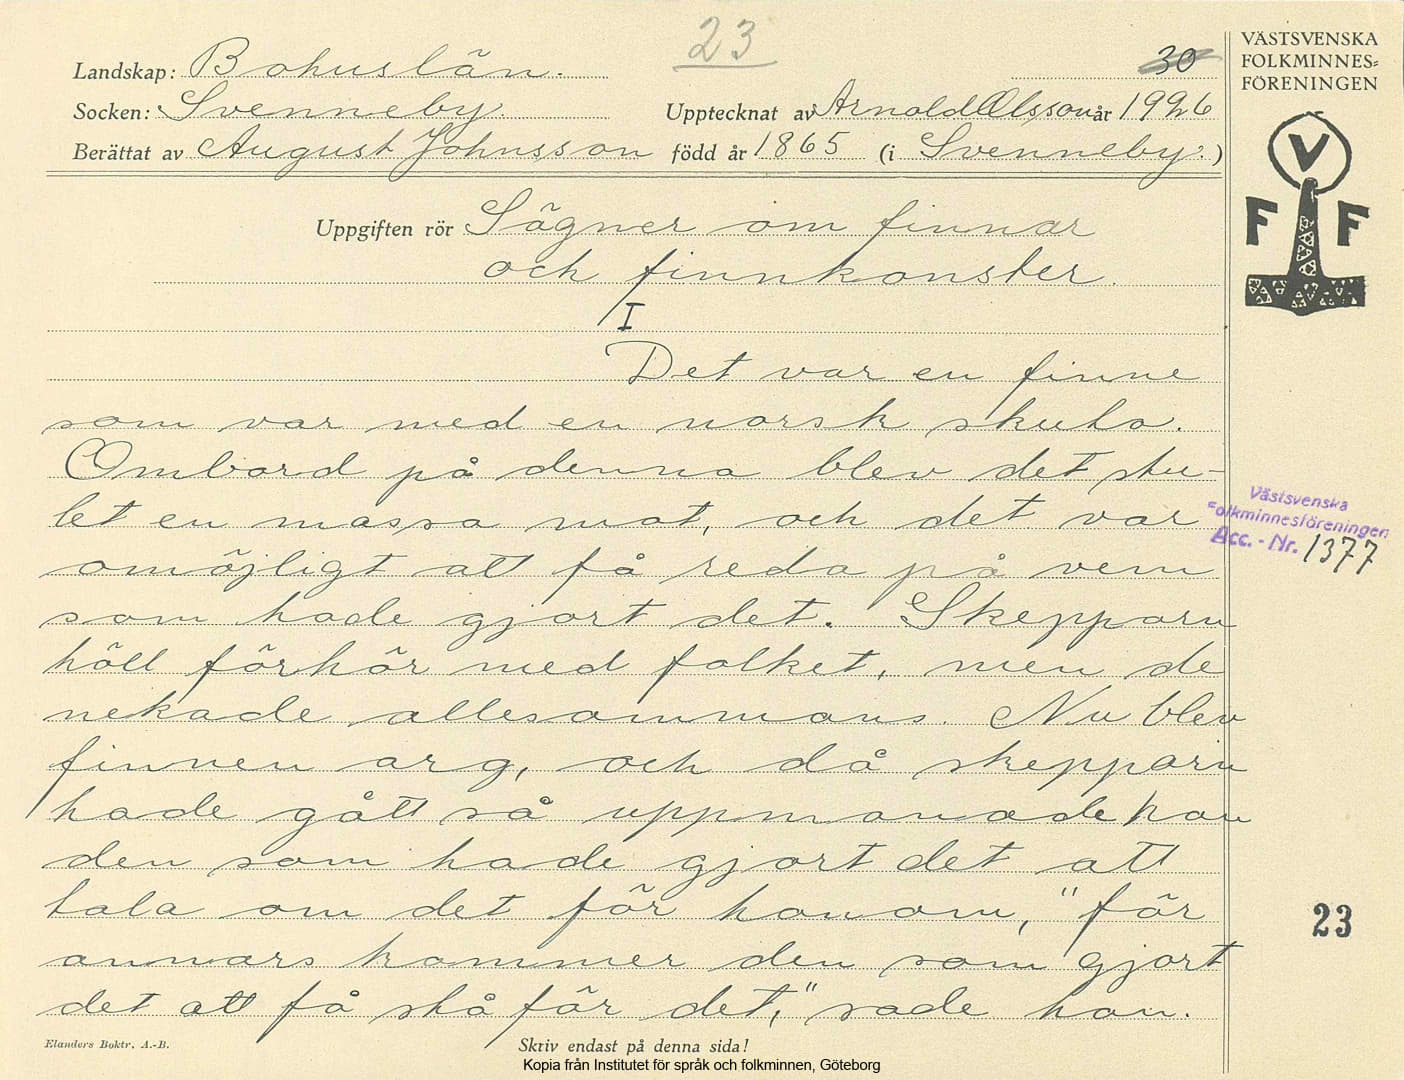 23
30
Landskap: Bohuslän.
Socken: Svenneby. Upptecknat av Arnold Olsson år 1926
Berättat av August Johnsson född år 1865 (i Svenneby.)
Uppgiften rör Sägner om finnar
och finnkonster.
I
Det var en finne
som var med en norsk skuta.
Ombord på denna blev det stu-
let en massa mat, och det var
omöjligt att få reda på vem
som hade gjort det. Skepparn
höll förhör med folket, men de
nekade allesammans. Nu blev
finnen arg, och då skepparn
hade gått så uppmanade han
den som hade gjort det att
tala om det för honom, "för
annars kommer den som gjort
det att få stå för det," sade han.
Elanders Boktr. A.-B.
Skriv endast på denna sida!
Kopia från Institutet för språk och folkminnen, Göteborg
VÄSTSVENSKA
FOLKMINNES=
FÖRENINGEN
V
F F
Västsvenska
Folkminnesföreningen
Acc. - Nr. 1377
23